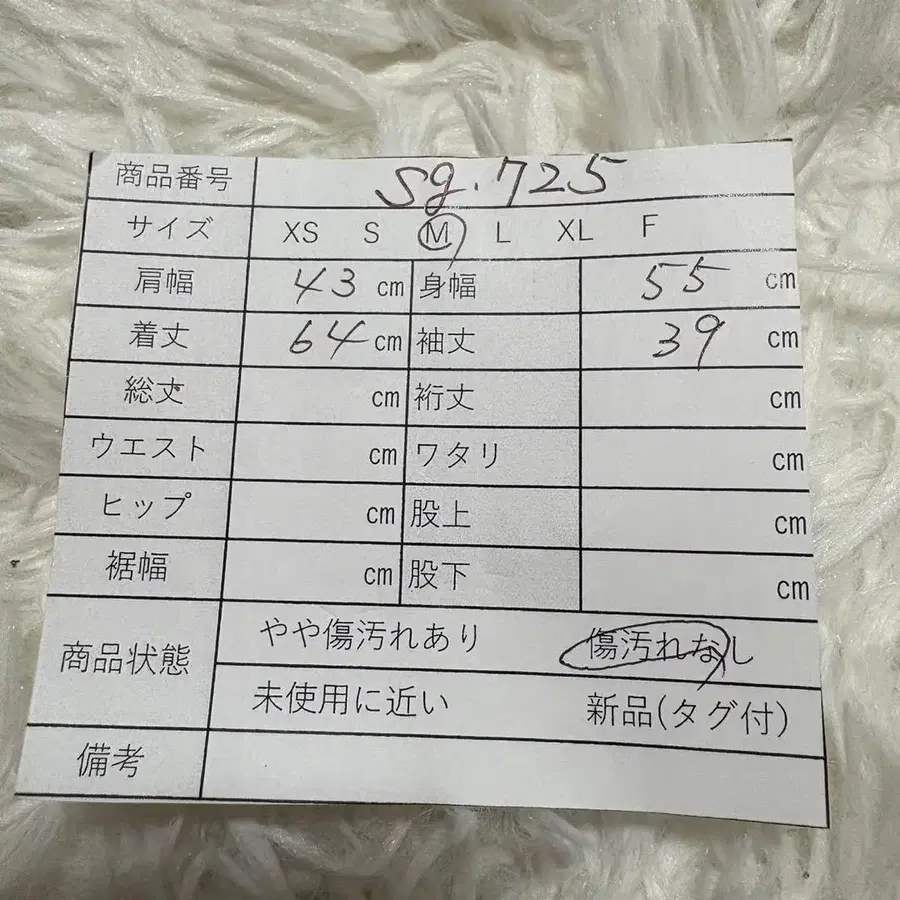 商品番号 sg.725
サイズ XS S M L XL F
肩幅 43 cm 身幅 55 cm
着丈 64 cm 袖丈 39 cm
総丈 cm 裄丈 cm
ウエスト cm ワタリ cm
ヒップ cm 股上 cm
裾幅 cm 股下 cm
商品状態 やや傷汚れあり 傷汚れなし
未使用に近い 新品(タグ付)
備考